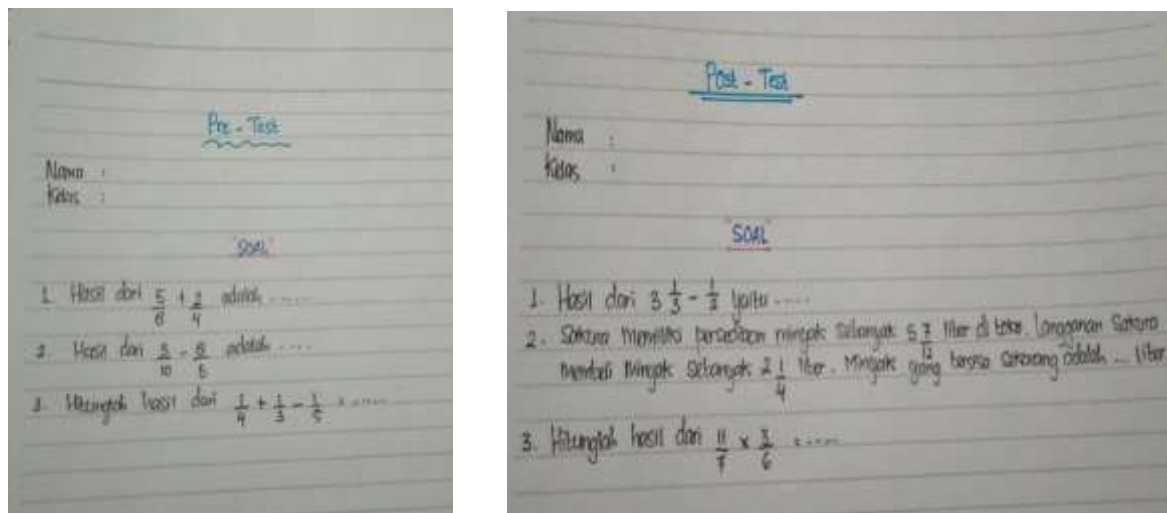 Pre - Test
Nama :
Kelas :
"SOAL"
1. Hasil dari 5/6 + 2/4 adalah .....
2. Hasil dari /10 - /5 adalah ....
3. Hitunglah hasil dari 1/4 + 1/3 - 1/5 = .....
Post - Test
Nama :
Kelas :
"SOAL"
1. Hasil dari 3 1/3 - 1/2 yaitu .....
2. Sakura memiliki persediaan minyak sebanyak 5 7/12 liter di toko. Langganan Sakura
membeli minyak sebanyak 2 1/4 liter. Minyak yang tersisa sekarang adalah ... liter
3. Hitunglah hasil dari 11/7 x /6 = .....